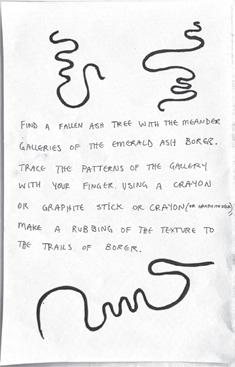 FIND A FALLEN ASH TREE WITH THE MEANDER
GALLERIES OF THE EMERALD ASH BORER.
TRACE THE PATTERNS OF THE GALLERY
WITH YOUR FINGER. USING A CRAYON
OR GRAPHITE STICK OR CRAYON (OR
MAKE A RUBBING OF THE TEXTURE TO
THE TRAILS OF BORER.